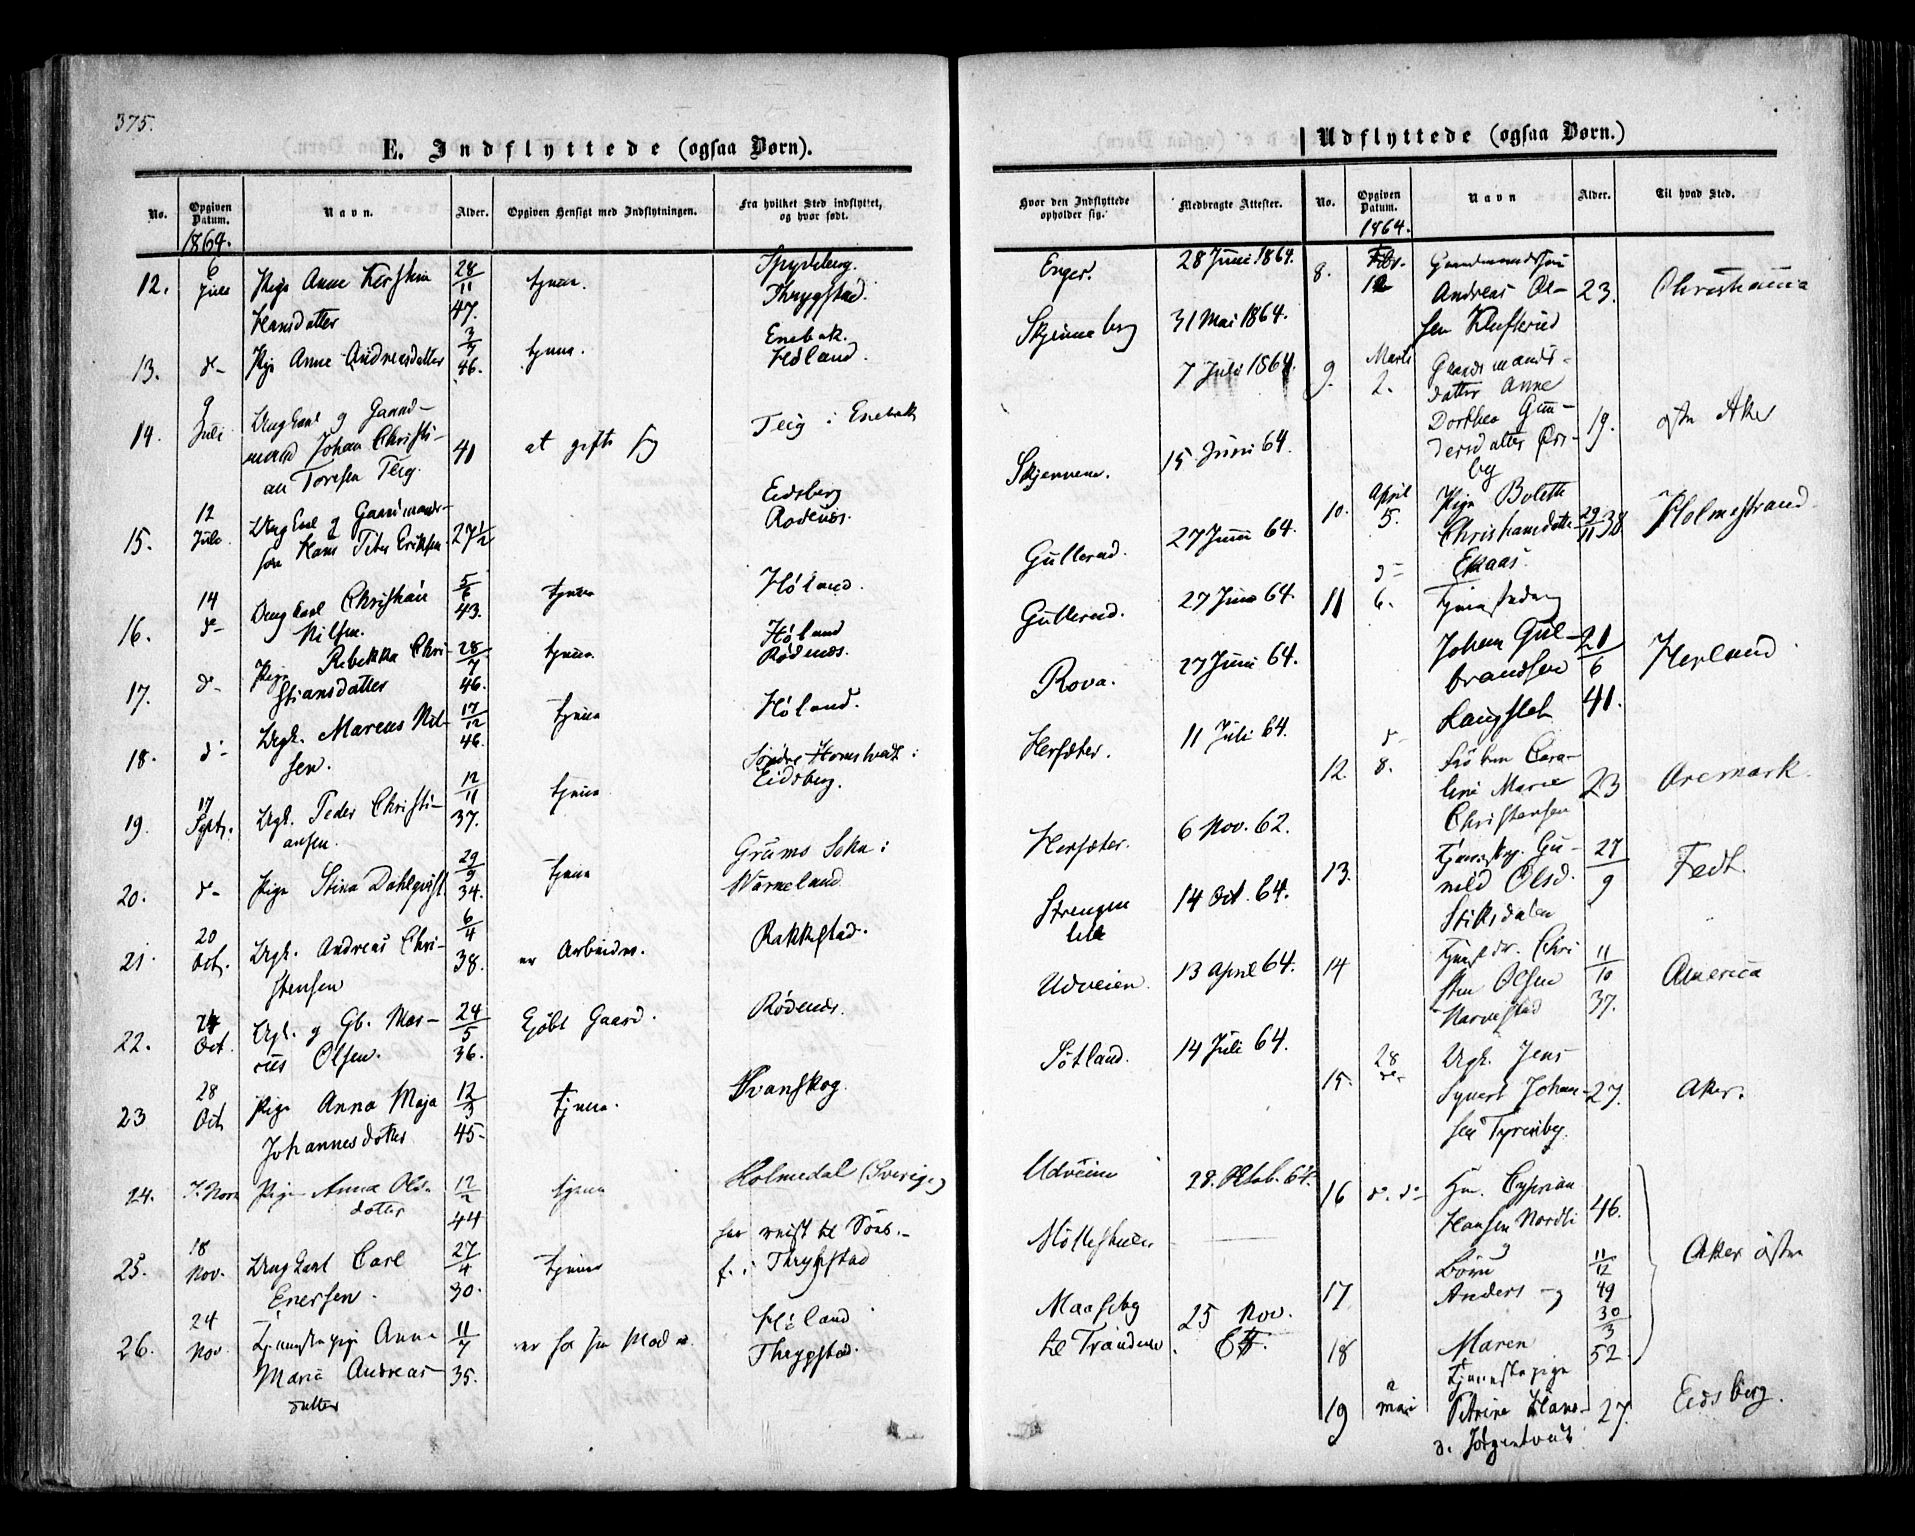 375.
E. Indflyttede (ogsaa Børn).
No. Opgiven Datum. Navn. Alder. Opgiven Hensigt med Indflytningen. Fra hvilket Sted indflyttet, og hvor født.
1864.
12. 6 Juli Pige Anne Kerstine Hansdatter 28/11 47. tjene. Spydeberg. Thrygstad.
13. d- Pige Anne Andreasdatter 3/7 46. tjene. Enebak. Høland.
14. 9 Juli Ungkarl og Gaardmand Johan Christian Toresen Teig. 41 at gifte sig Teig i Enebak
15. 12 Juli Ungkarl og Gaardmandssøn Hans Peter Eriksen 27½ Eidsberg Rødenæs.
16. 14 d- Ungkarl Christian Nilsen. 5/6 43. tjene Høland.
17. d- Pige Rebekka Christiansdatter 28/7 46. tjene Høland Rødenæs.
18. d- Ungk. Marcus Nilsen. 17/12 46. tjene Høland.
19. 17 Sept. Ungk. Peder Christiansen. 12/11 37. tjene Søndre Homstvedt i Eidsberg.
20. d- Pige Stina Dahlqvist 29/9 34. tjene Grums Sokn i Värmeland
21. 20 Oct. Ungk. Andreas Christensen 6/4 38. er Arbeider. Rakkestad.
22. 24 Oct. Ugk. og Gb. Marius Olsen. 24/5 36. Kjøbt Gaard. Rødenæs.
23 28 Oct Pige Anna Maja Johannesdotter 12/3 45- tjene. Svanskog.
24. 7. Nov Pige Anna Olsdotter 12/2 44 tjene Holmedal (Sverige)
25. 18 Nov. Ungkarl Carl Enersen. 27/4 30. tjene har reist til f. i Thrygstad
26. 24 Nov. Tjenestepige Anne Marie Andreasdatter 11/7 35. er hos sin Moder. Høland Thrygstad.
Hvor den Indflyttede opholder sig. Medbragte Attester.
Enger. 28 Juni 1864.
Skjønneberg 31 Mai 1864.
7 Juli 1864.
Skjennene. 15 Juni 64.
Gullerud. 27 Juni 64.
Gullerud. 27 Juni 64.
Rova. 27 Juni 64.
Hersæter. 11 Juli 64.
Hersæter. 6 Nov. 62.
Strengen 14 Oct. 64.
Udveien. 13 April 64.
Søtland. 14 Juli 64.
Udveien 28. Oktob. 64.
Maaseby til Trandem. 25 Nov.
Udflyttede (ogsaa Børn.)
No. Opgiven Datum. Navn Alder. Til hvad Sted.
1864.
8. Febr. 12 Gaardmandssøn Andreas Olsen Kluftrud 23. Christiania
9. Marts 2. Gaardmandsdatter Anne Dorthea Gundersdatter Ørsby 19. østre Aker
10. April 5. Pige Bolette Christiansdatter 29/11 38 Holmestrand.
11 d- 6. Johan Gulbrandsen Langslet 21/6 41. Herland
12. d- 8. Frøken Caroline Marie Christensen 23 Aremark.
13. Gunild Olsd. Stiksdalen 27/9 Fedt.
14 Tjenestedr. Christen Olsen Narvestad 11/10 37. America
15. 28 d- Ungk. Jens Syvert Johansen Tyrenby. 27. Aker.
16 d. d- Hm. Cyprian Hansen Nordli 46. Aker østre
Børn
17 Anders og 11/12 49
18 Maren 30/3 52.
19 2 mai Tjenestepige Petrine Hansd. 27. Eidsberg.